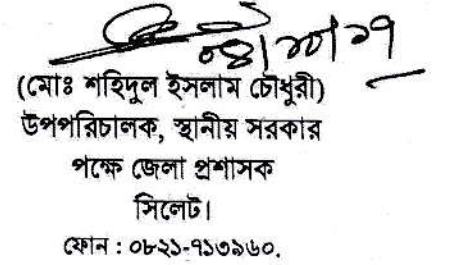 ০৪|১০|১৭
(মোঃ শহিদুল ইসলাম চৌধুরী)
উপপরিচালক, স্থানীয় সরকার
পক্ষে জেলা প্রশাসক
সিলেট।
ফোন : ০৮২১-৭১৩৯৬০.